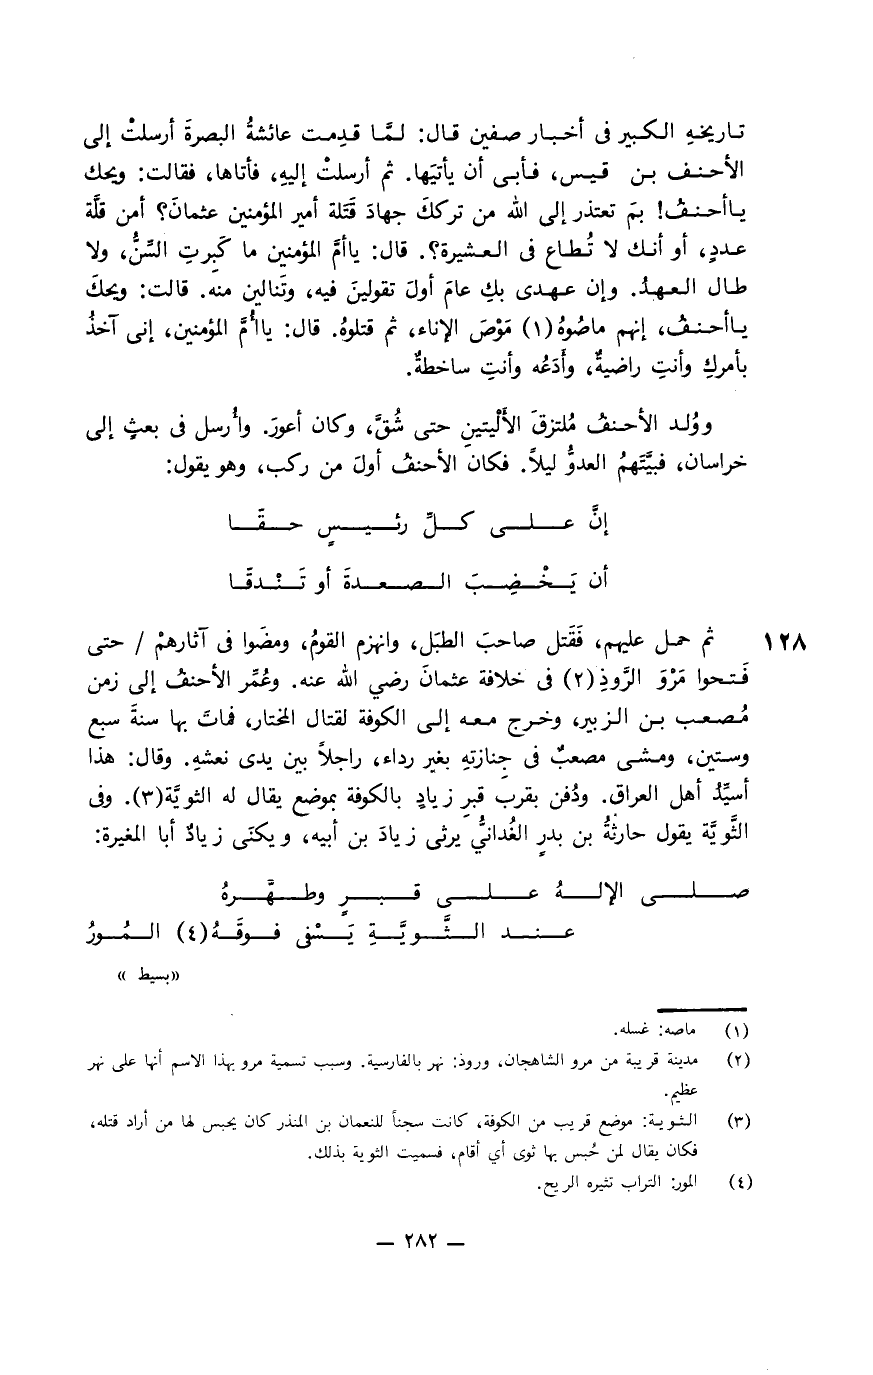 تاريخهِ الكبير فى أخبار صفين قال: لمَّا قدِمت عائشةُ البصرةَ أرسلتْ إلى
الأحنف بن قيس، فأبى أن يأتيَها. ثم أرسلتْ إليهِ، فأتاها، فقالت: ويحك
ياأحنفُ! بمَ تعتذر إلى الله من ترككَ جهادَ قَتَلة أمير المؤمنين عثمانَ؟ أمن قلَّة
عددٍ، أو أنك لا تُطاع فى العشيرة؟. قال: ياأمَّ المؤمنين ما كَبِرتِ السِّنُّ، ولا
طال العهدُ. وإن عهدى بكِ عامَ أولَ تقولينَ فيه، وتَنالين منه. قالت: ويحكَ
ياأحنفُ، إنهم ماصُوهُ (١) مَوْصَ الإناء، ثم قتلوهُ. قال: ياأُمَّ المؤمنين، إنى آخذُ
بأمركِ وأنتِ راضيةٌ، وأَدَعُه وأنتِ ساخطةٌ.
ووُلد الأحنفُ مُلتزقَ الأَلْيتينِ حتى شُقَّ، وكان أعورَ. وأُرسل فى بعثٍ إلى
خراسان، فبيَّتَهمُ العدوُّ ليلاً. فكان الأحنفُ أولَ من ركب، وهو يقول:
إنَّ على كلِّ رئيسٍ حقَّا
أن يَخْضِبَ الصعدةَ أو تَنْدقَّا
١٢٨ ثم حمل عليهم، فَقَتل صاحبَ الطبَل، وانهزم القومُ، ومضَوا فى آثارهمْ / حتى
فَتحوا مَرْوَ الرَّوذِ (٢) فى خلافة عثمانَ رضي الله عنه. وعُمِّر الأحنفُ إلى زمن
مُصعب بن الزبير، وخرج معه إلى الكوفة لقتال المختار، فماتَ بها سنةَ سبع
وستين، ومشى مصعبٌ فى جِنازتهِ بغير رداء، راجلاً بين يدى نعشهِ. وقال: هذا
أسيِّدُ أهل العراق. ودُفن بقرب قبرِ زيادٍ بالكوفة بموضع يقال له الثويَّة (٣). وفى
الثَّويَّة يقول حارثةُ بن بدرٍ الغُدانيُّ يرثى زيادَ بن أبيه، ويكنّى زيادٌ أبا المغيرة:
صلى الإلهُ على قبرٍ وطهَّرهُ
عند الثَّويَّةِ يَسْفى فوقَهُ (٤) المُورُ
«بسيط»
(١) ماصه: غسله.
(٢) مدينة قريبة من مرو الشاهجان، وروذ: نهر بالفارسية. وسبب تسمية مرو بهذا الاسم أنها على نهر
عظيم.
(٣) الثوية: موضع قريب من الكوفة، كانت سجناً للنعمان بن المنذر كان يحبس لها من أراد قتله،
فكان يقال لمن حُبس بها ثوى أي أقام، فسميت الثوية بذلك.
(٤) المور: التراب تثيره الريح.
— ٢٨٢ —